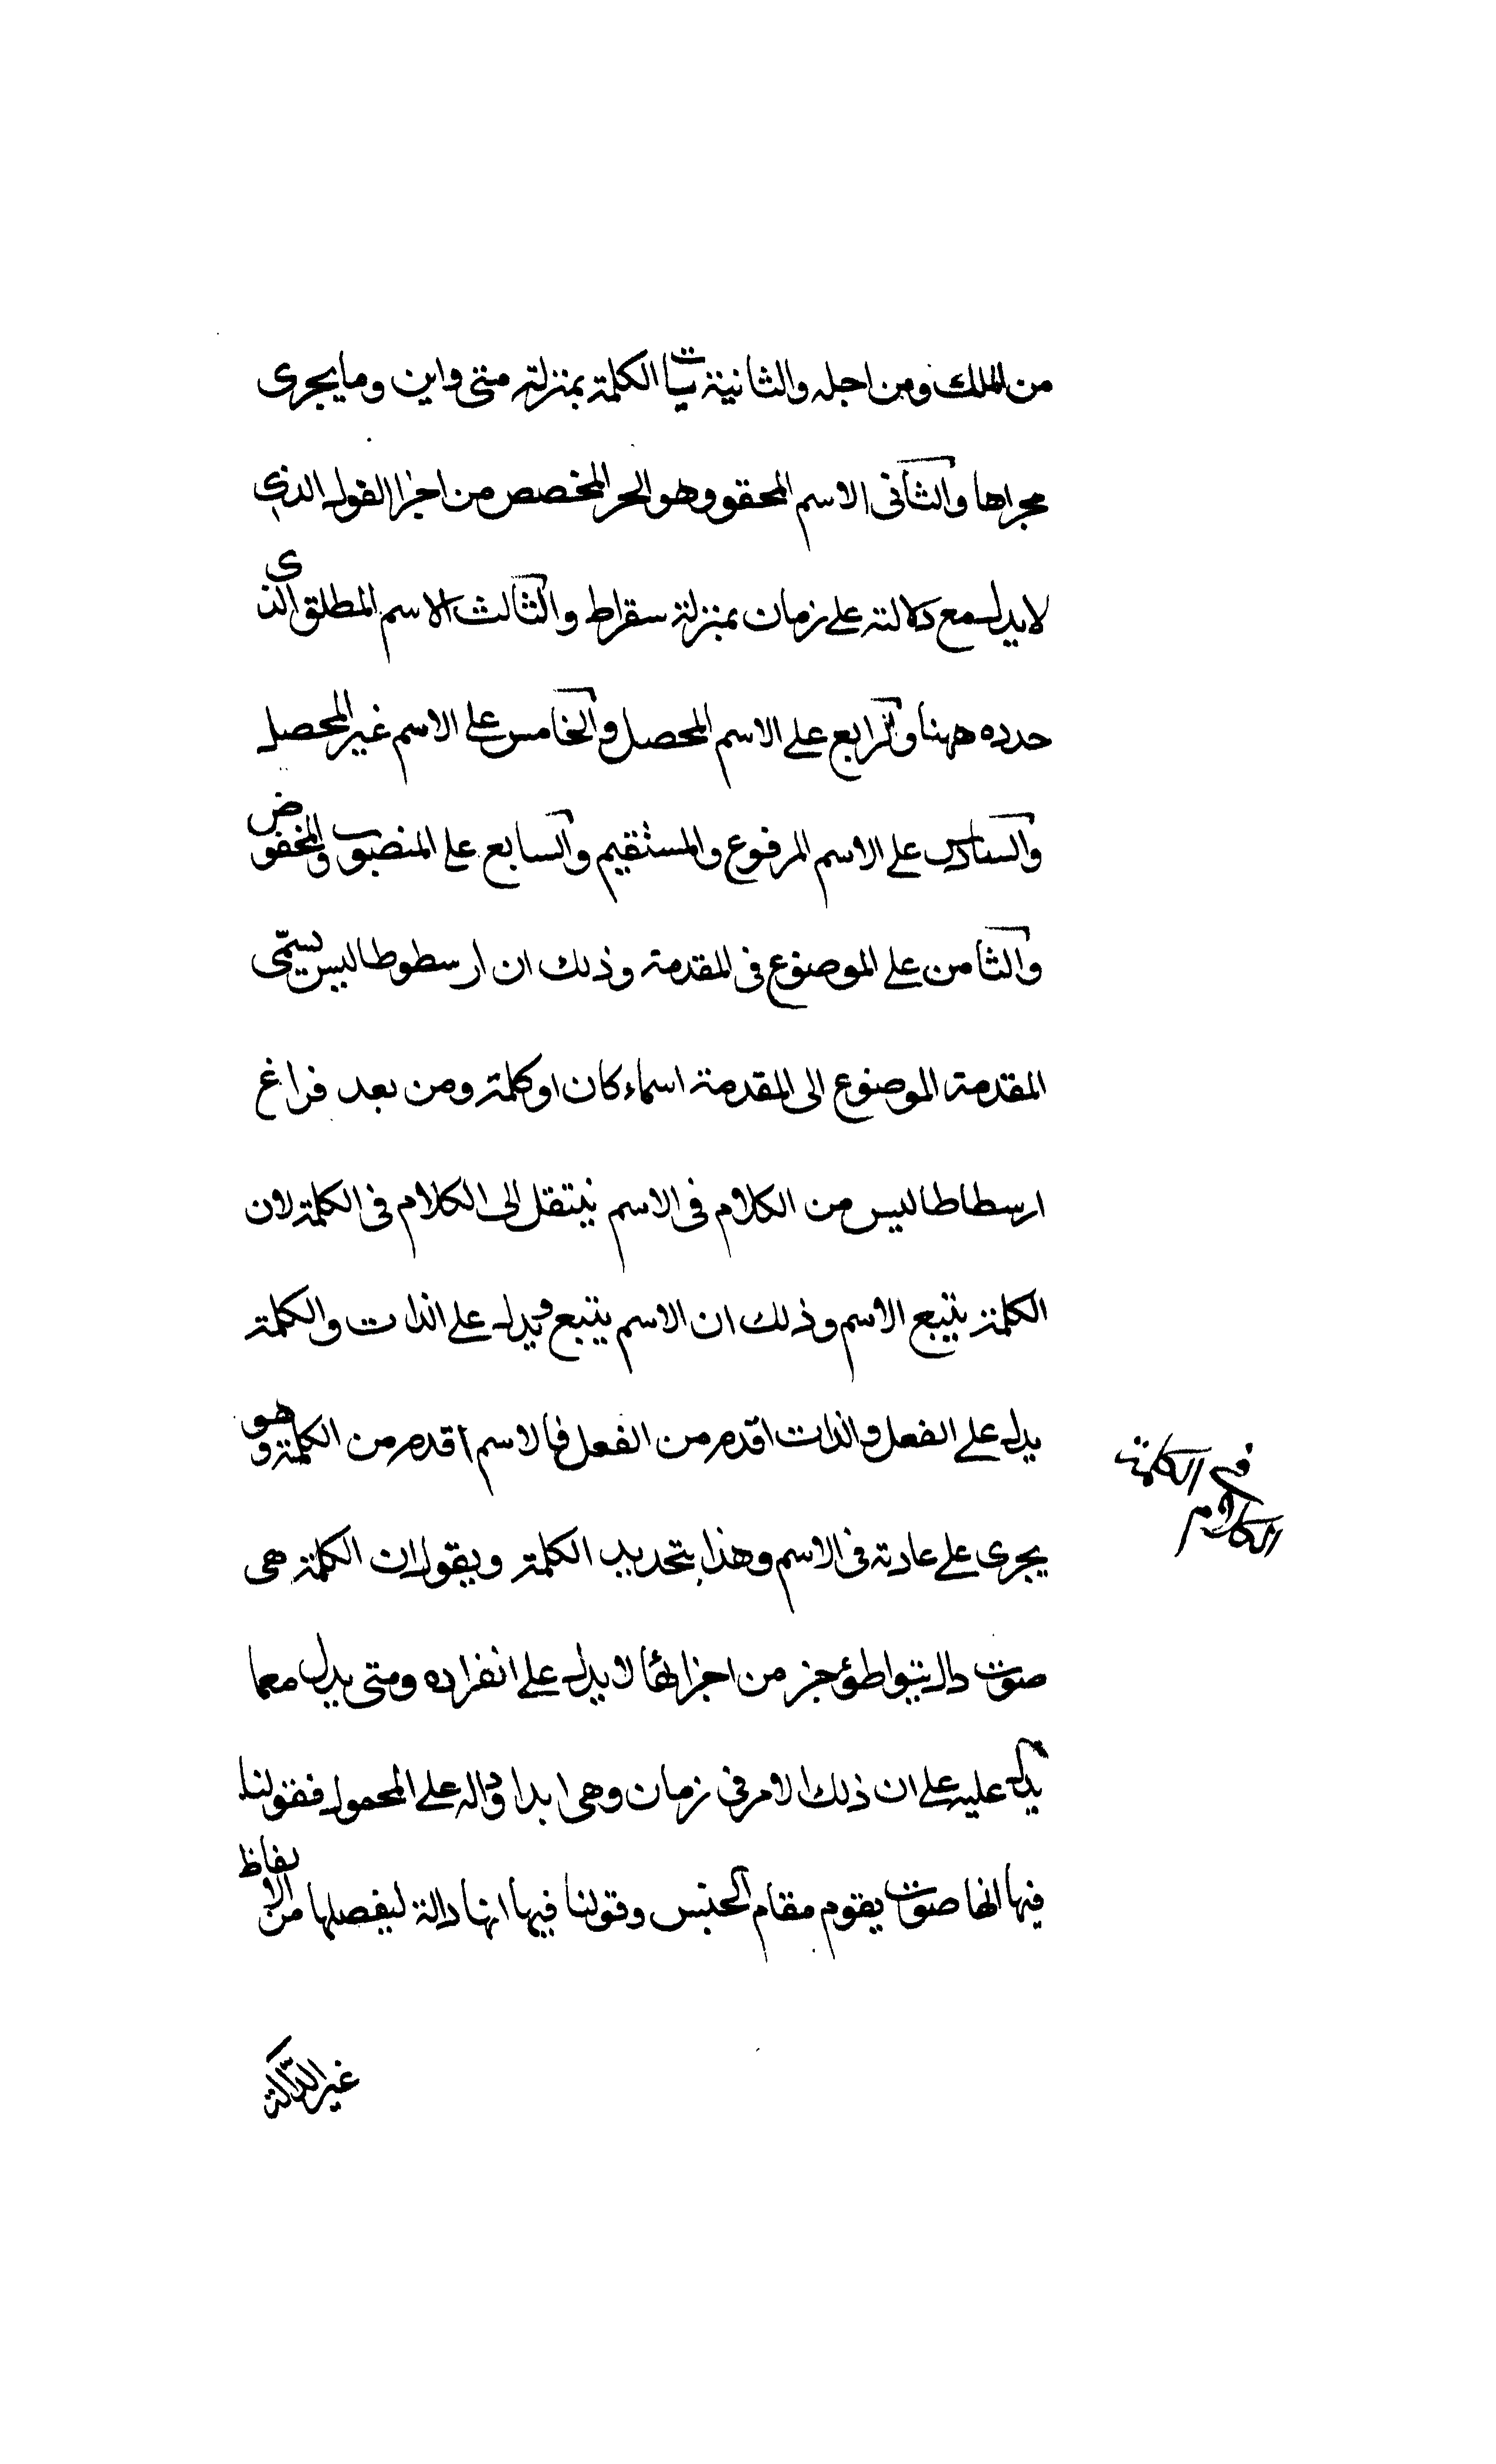 من الملك ومن اجله والثانية تيات الكلمة بمنزلة متى واين وما يجرى
مجراها والثانى الاسم المحقو وهو الحر المخصص من اجزا القول الذى
لا يدل مع دلالته على زمان بمنزلة سقراط والثالث الاسم المطلق الذى
حدده ههنا والرابع على الاسم المحصل والخامس على الاسم غير المحصل
والسادس على الاسم المرفوع والمستقيم والسابع على المنصوب والمخفوض
والثامن على الموضوع فى المقدمة وذلك ان ارسطوطاليس يسمّى
المقدمة الموضوع الى المقدمة اسماء كان او كلمة ومن بعد فراغ
ارسطاطاليس من الكلام فى الاسم ينتقل الى الكلام فى الكلمة لان
الكلمة يتبع الاسم وذلك ان الاسم يتبع ويدل على الذات والكلمة
يدل على الفعل والذات اقدم من الفعل فالاسم اقدم من الكلمة وهو
يجرى على عادته فى الاسم وهذا بتحديد الكلمة ويقول ان الكلمة هى
صوت دال بتواطؤ جز من اجزائها لا يدل على انفراده ومتى يدل معما
يدل عليه على ان ذلك الامر فى زمان وهى ابدا دالة على المحمول فقولنا
فيها انها صوت يقوم مقام الجنس وقولنا فيها انها دالة ليفصلها من الالفاظ
غير الدالة
الكلام
فى الكلمة